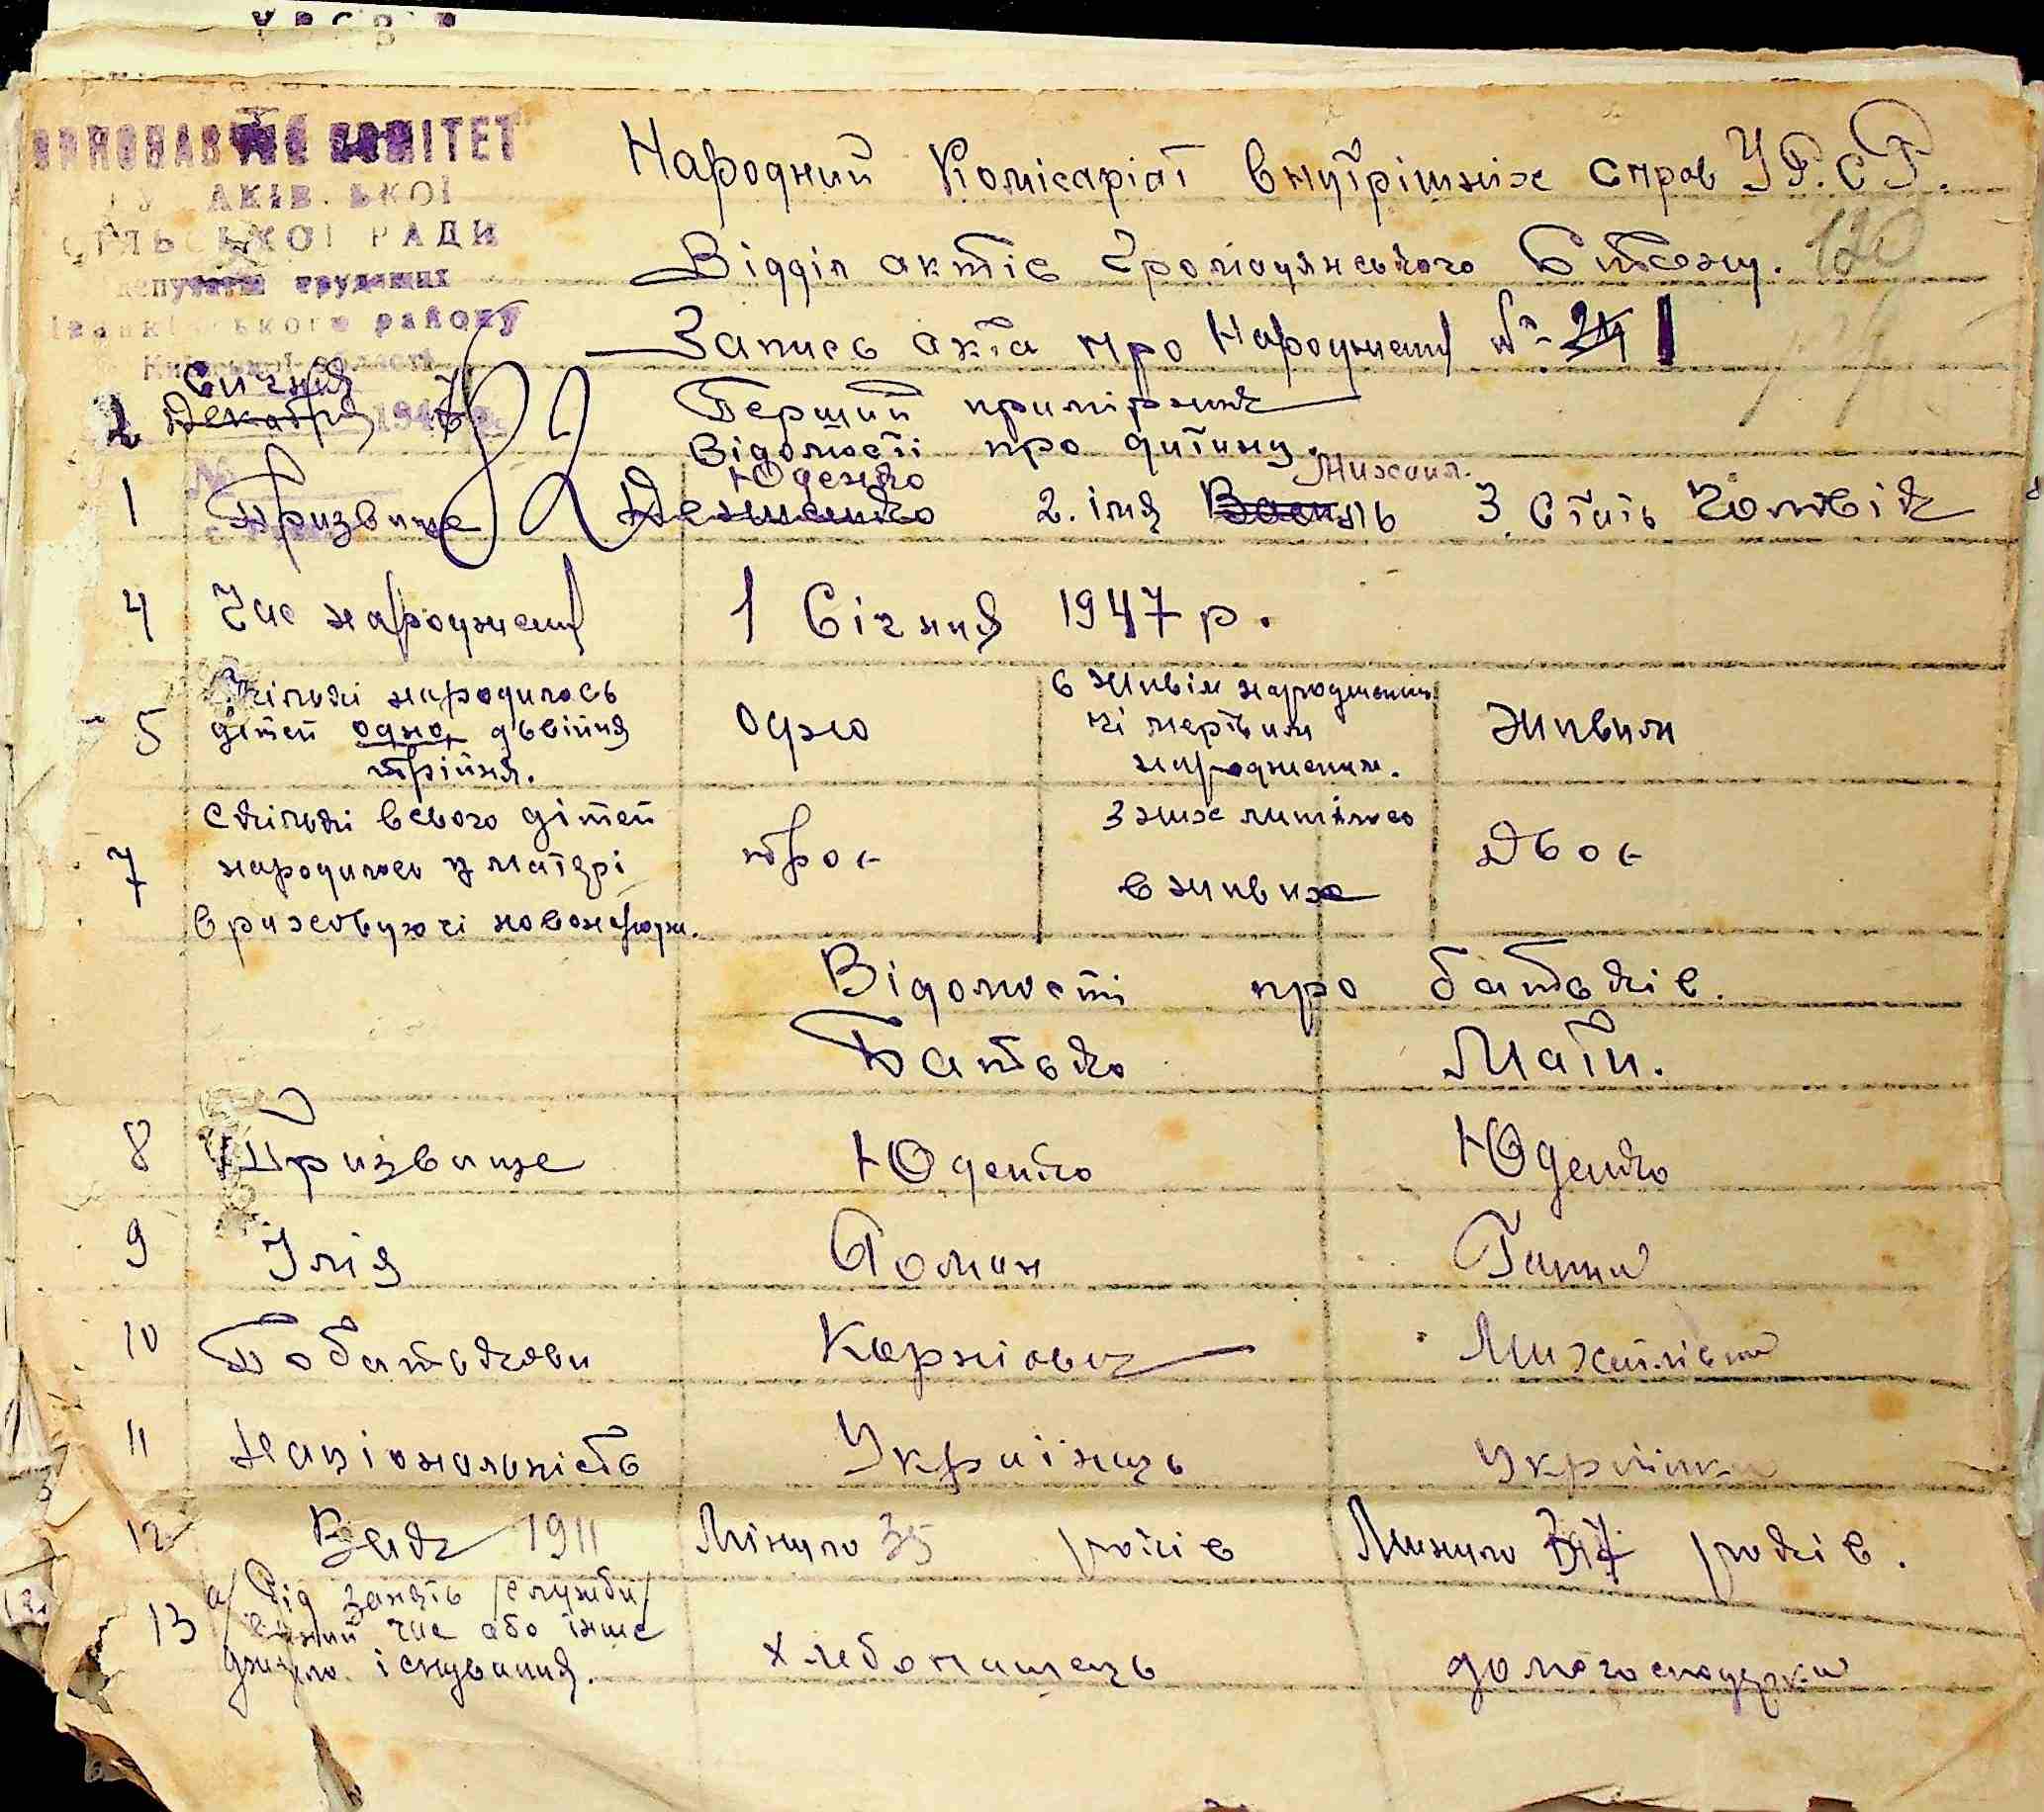 ВИКОНАВЧИЙ КОМІТЕТ
СІЛЬСЬКОЇ РАДИ
депутатів трудящих
Іванківського району
Київської області
Народний Комісаріат внутрішніх справ У.Р.С.Р.
Відділ актів Громадянського Битьжу.
120
Запись акта про Народження № 24 1
Січня
2 Декабря 194
Перший примірник
Відомості про дитину.
Юденко Михаил.
1 Призвище 2. імя Василь 3 Стать Чоловік
4 Час народження 1 Січня 1947 р.
5 Скільки народилось дітей одно, двійня трійня. Одно в живім народженим чі мертвим народженим. живим
7 Скільки всього дітей народилось у матері враховуючі новонародж. трое з них лишилось в живих Двое
Відомості про батьків.
Батько Мати.
8 Призвище Юденко Юденко
9 Імя Роман Ганна
10 Побатькови Карпович Михайлівна
11 Національність Українець Українка
12 Вік 1911 Минуло 35 років Минуло 37 років.
13 а/ Рід занять /служби/ час або інше джерело існування. хлебопашець домогосподарка